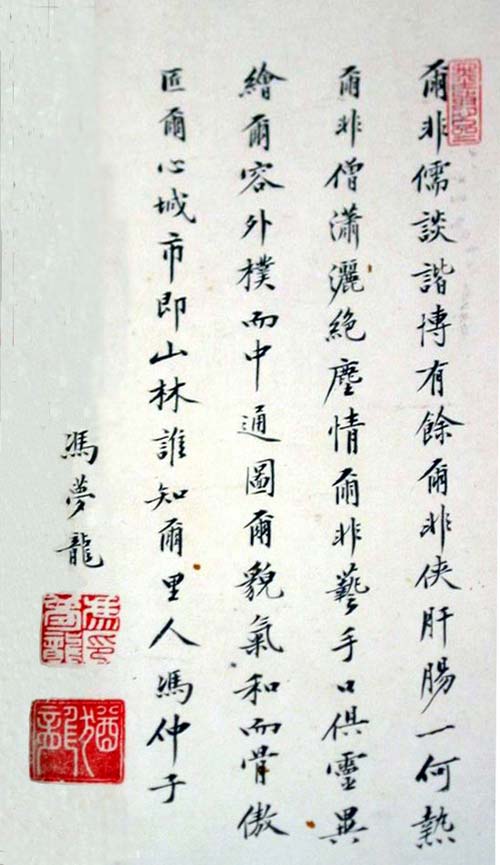 爾非儒談諧博有餘爾非俠肝腸一何熱
爾非僧瀟灑絶塵情爾非藝手口俱靈異
繪爾容外樸而中通圖爾貌氣和而骨傲
匪爾心城市即山林誰知爾里人馮仲子
馮夢龍
馮印夢龍
猶龍